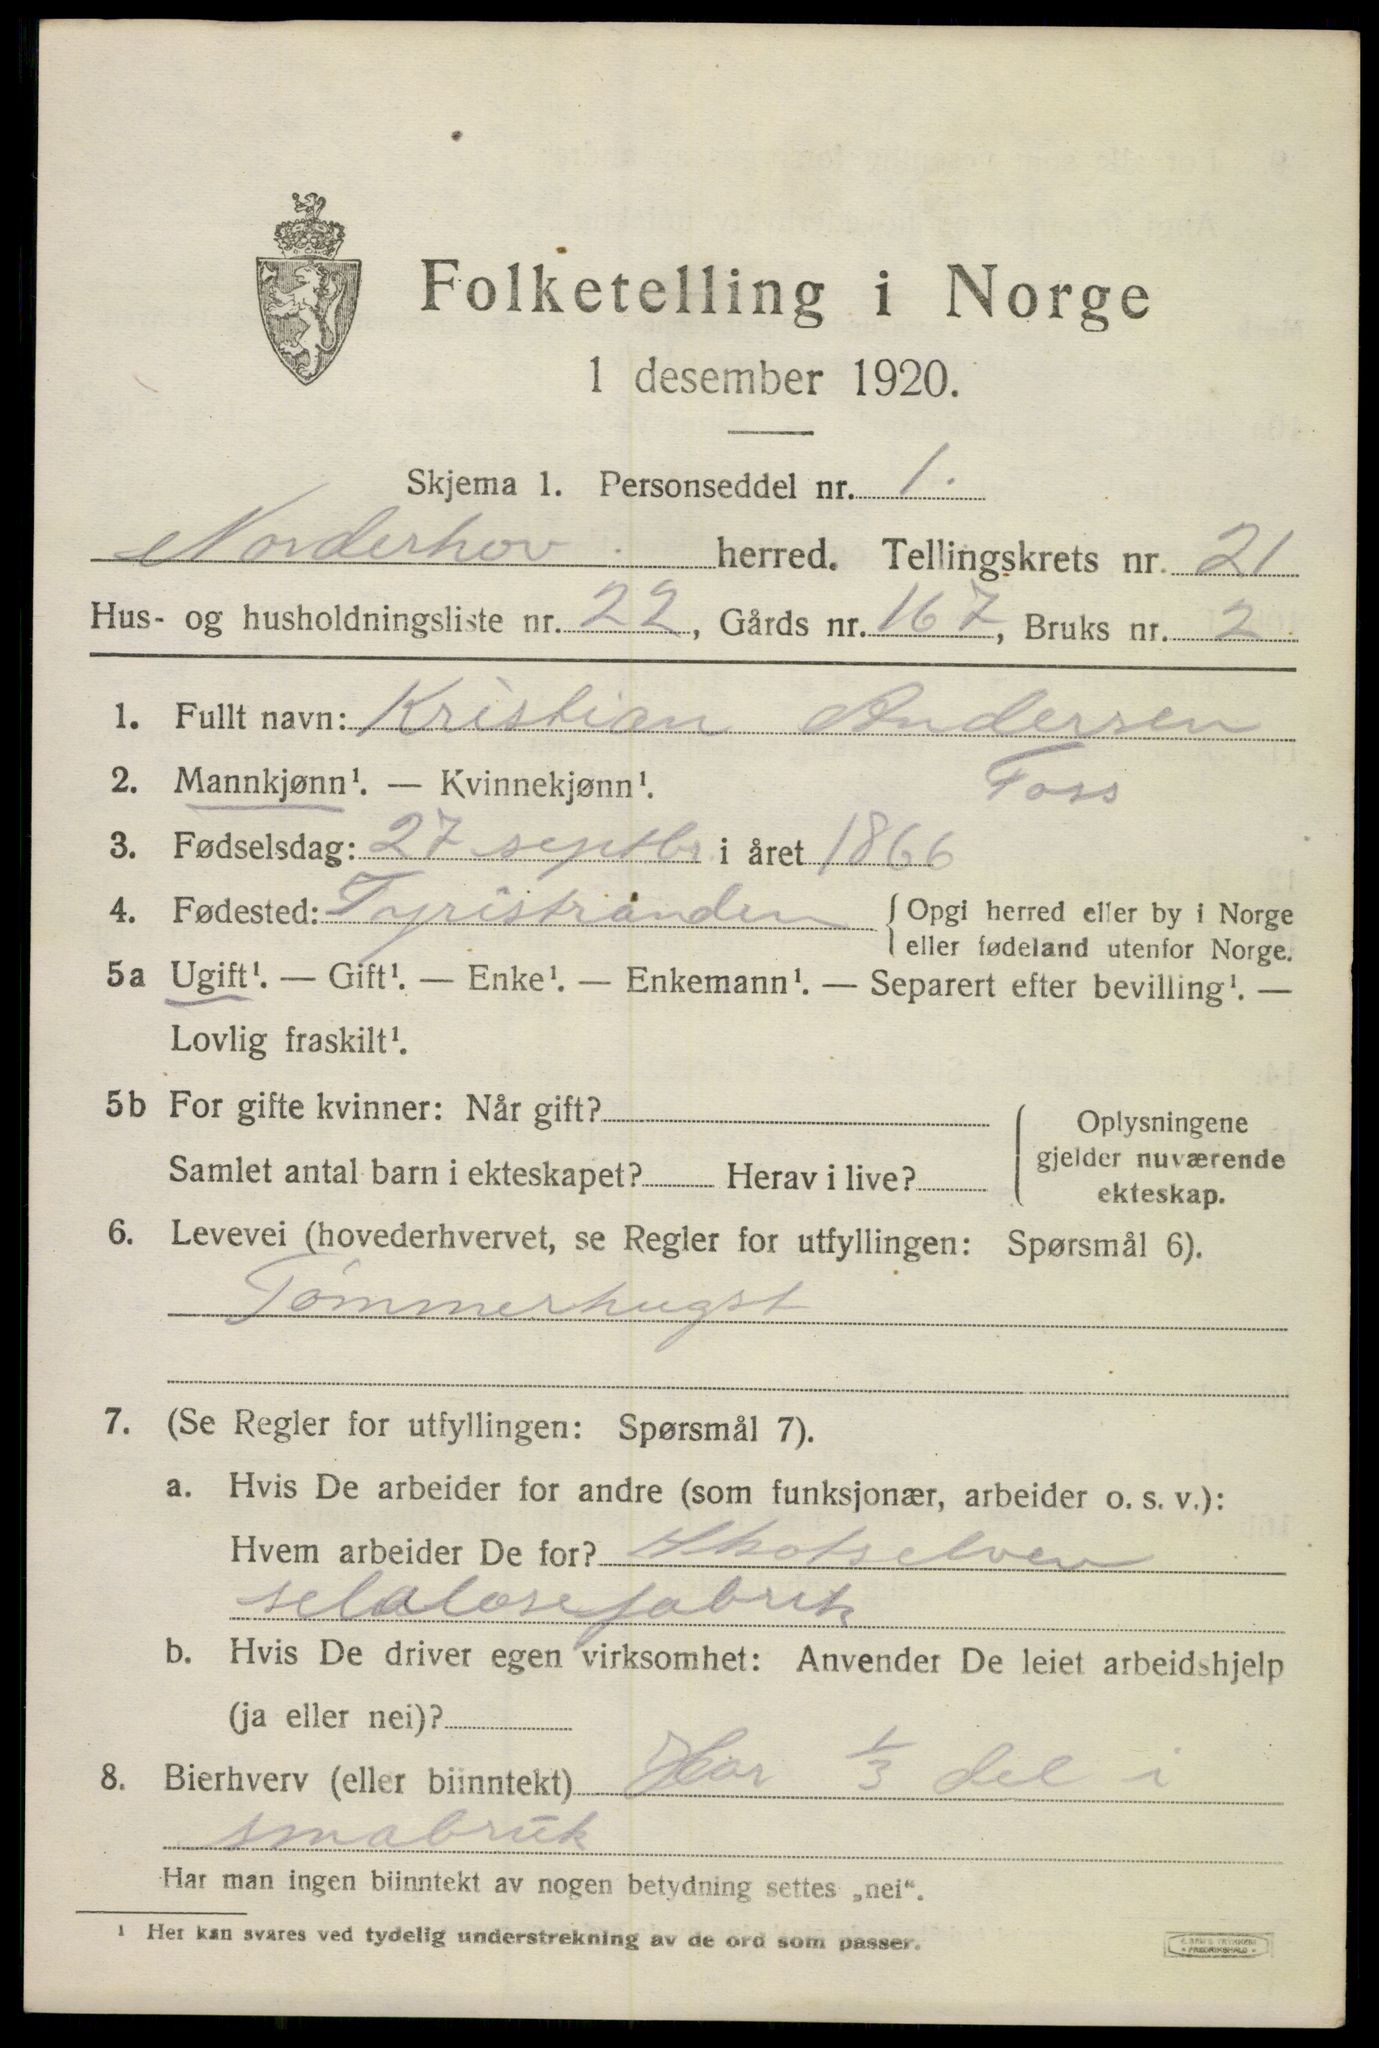 Folketelling i Norge
1 desember 1920.
Skjema 1. Personseddel nr. 1.
Norderhov herred. Tellingskrets nr. 21
Hus- og husholdningsliste nr. 22, Gårds nr. 167, Bruks nr. 2
1. Fullt navn: Kristian Andersen
Foss
2. Mannkjønn¹. — Kvinnekjønn¹.
3. Fødselsdag: 27 septbr. i året 1866
4. Fødested: Tyristranden { Opgi herred eller by i Norge
eller fødeland utenfor Norge.
5a Ugift¹. — Gift¹. — Enke¹. — Enkemann¹. — Separert efter bevilling¹. —
Lovlig fraskilt¹.
5b For gifte kvinner: Når gift?
Samlet antal barn i ekteskapet? Herav i live?
Oplysningene
gjelder nuværende
ekteskap.
6. Levevei (hovederhvervet, se Regler for utfyllingen: Spørsmål 6).
Tømmerhugst
7. (Se Regler for utfyllingen: Spørsmål 7).
a. Hvis De arbeider for andre (som funksjonær, arbeider o. s. v.):
Hvem arbeider De for? Skotselven
selulosefabrik
b. Hvis De driver egen virksomhet: Anvender De leiet arbeidshjelp
(ja eller nei)?
8. Bierhverv (eller biinntekt) Har 1/3 del i
smabruk
Har man ingen biinntekt av nogen betydning settes „nei“.
¹ Her kan svares ved tydelig understrekning av de ord som passer.